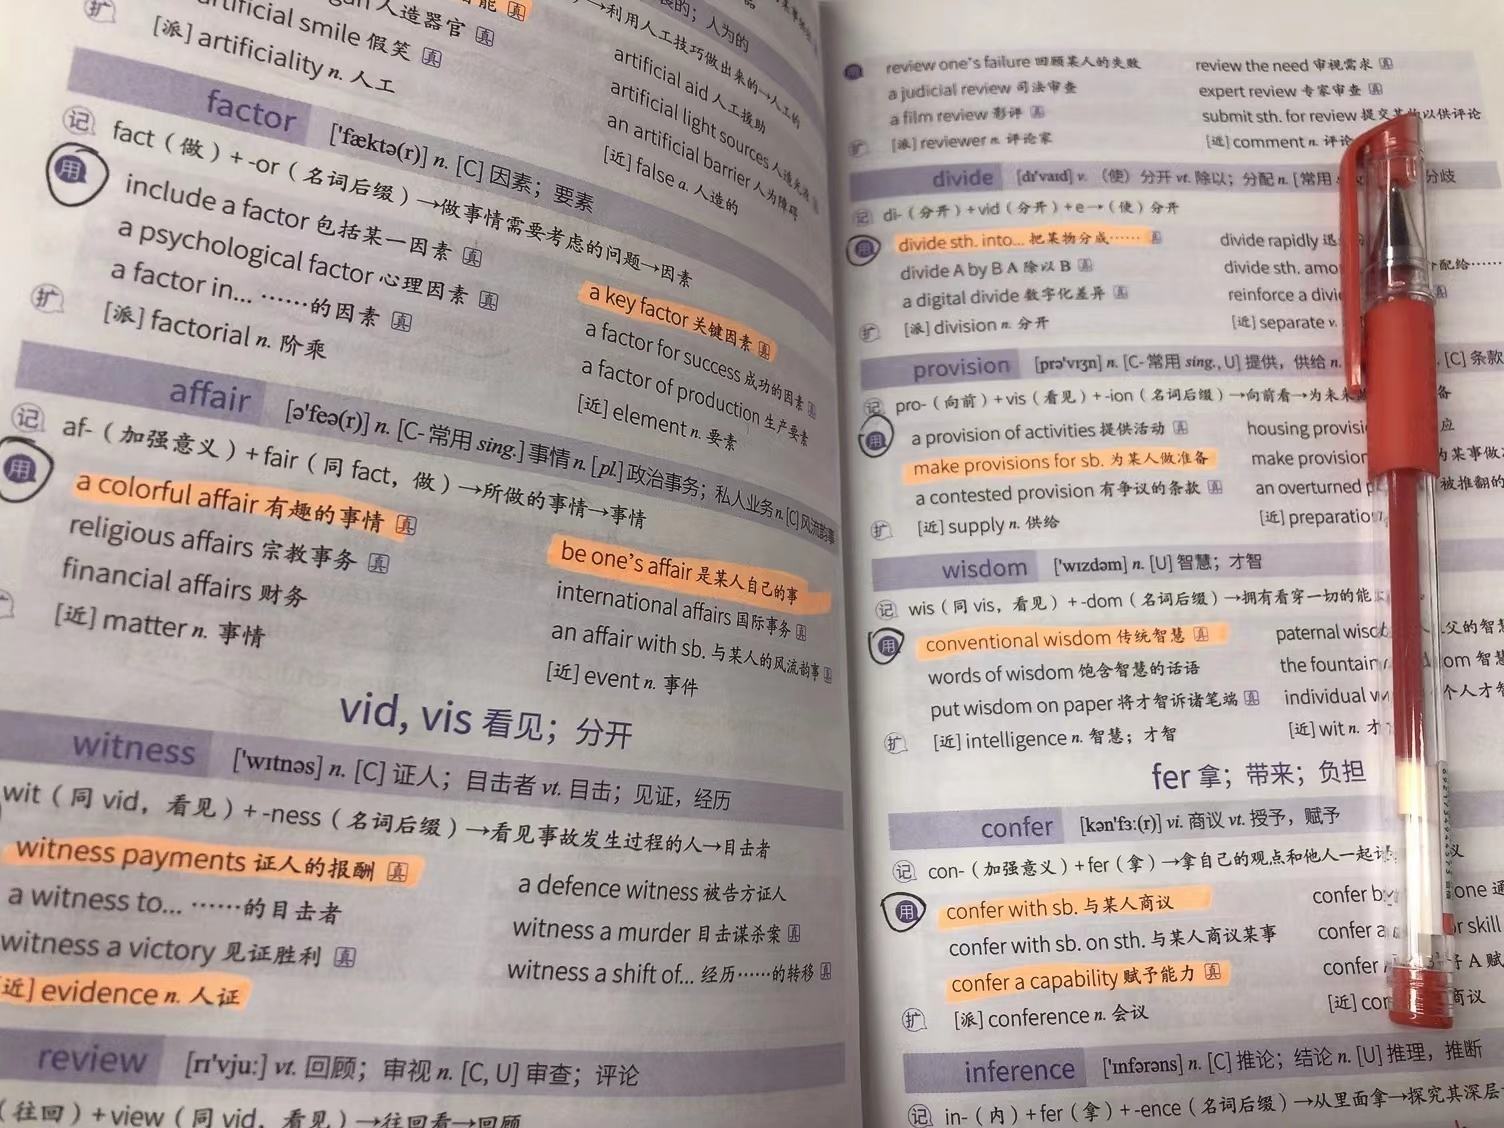 能 真
人造器官 真
artificial smile 假笑 真
[派] artificiality n. 人工
人为的
→利用人工技巧做出来的→人工的
artificial aid 人工援助
artificial light sources 人造光源
an artificial barrier 人为障碍
[近] false a. 人造的
factor ['fæktə(r)] n. [C] 因素；要素
记 fact（做）+ -or（名词后缀）→做事情需要考虑的问题→因素
用 include a factor 包括某一因素 真
a key factor 关键因素 真
a psychological factor 心理因素 真
a factor for success 成功的因素 真
a factor in... ……的因素 真
a factor of production 生产要素
扩 [派] factorial n. 阶乘
[近] element n. 要素
affair [ə'feə(r)] n. [C-常用 sing.] 事情 n. [pl.] 政治事务；私人业务 n. [C] 风流韵事
记 af-（加强意义）+ fair（同 fact，做）→所做的事情→事情
用 a colorful affair 有趣的事情 真
be one's affair 是某人自己的事
religious affairs 宗教事务 真
international affairs 国际事务 真
financial affairs 财务
an affair with sb. 与某人的风流韵事 真
[近] matter n. 事情
[近] event n. 事件
vid, vis 看见；分开
witness ['wɪtnəs] n. [C] 证人；目击者 vt. 目击；见证，经历
wit（同 vid，看见）+ -ness（名词后缀）→看见事故发生过程的人→目击者
witness payments 证人的报酬 真
a defence witness 被告方证人
a witness to... ……的目击者
witness a murder 目击谋杀案 真
witness a victory 见证胜利 真
witness a shift of... 经历……的转移 真
近] evidence n. 人证
review [rɪ'vjuː] vt. 回顾；审视 n. [C, U] 审查；评论
（往回）+ view（同 vid，看见）→往回看→回顾
用 review one's failure 回顾某人的失败
review the need 审视需求 真
a judicial review 司法审查
expert review 专家审查 真
a film review 影评 真
submit sth. for review 提交某物以供评论
扩 [派] reviewer n. 评论家
[近] comment n. 评论
divide [dɪ'vaɪd] v. （使）分开 vt. 除以；分配 n. [常用 分歧
记 di-（分开）+ vid（分开）+ e→（使）分开
用 divide sth. into... 把某物分成…… 真
divide rapidly
divide A by B A 除以 B 真
divide sth. 配给……
a digital divide 数字化差异 真
reinforce a
扩 [派] division n. 分开
[近] separate v.
provision [prə'vɪʒn] n. [C-常用 sing., U] 提供，供给 n. [C] 条款
记 pro-（向前）+ vis（看见）+ -ion（名词后缀）→向前看→为未来 备
用 a provision of activities 提供活动 真
housing 应
make provisions for sb. 为某人做准备
make 为某事做
a contested provision 有争议的条款 真
an overturned 被推翻的
扩 [近] supply n. 供给
[近]
wisdom ['wɪzdəm] n. [U] 智慧；才智
记 wis（同 vis，看见）+ -dom（名词后缀）→拥有看穿一切的能
用 conventional wisdom 传统智慧 真
paternal 父的智慧
words of wisdom 饱含智慧的话语
the fountain om 智慧
put wisdom on paper 将才智诉诸笔端 真
individual 个人才智
扩 [近] intelligence n. 智慧；才智
[近] wit n. 才
fer 拿；带来；负担
confer [kən'fɜː(r)] vi. 商议 vt. 授予，赋予
记 con-（加强意义）+ fer（拿）→拿自己的观点和他人一起 议
用 confer with sb. 与某人商议
confer one 通
confer with sb. on sth. 与某人商议某事
confer or skill
confer a capability 赋予能力 真
confer A 赋
扩 [派] conference n. 会议
[近] 商议
inference ['ɪnfərəns] n. [C] 推论；结论 n. [U] 推理，推断
记 in-（内）+ fer（拿）+ -ence（名词后缀）→从里面拿→探究其深层